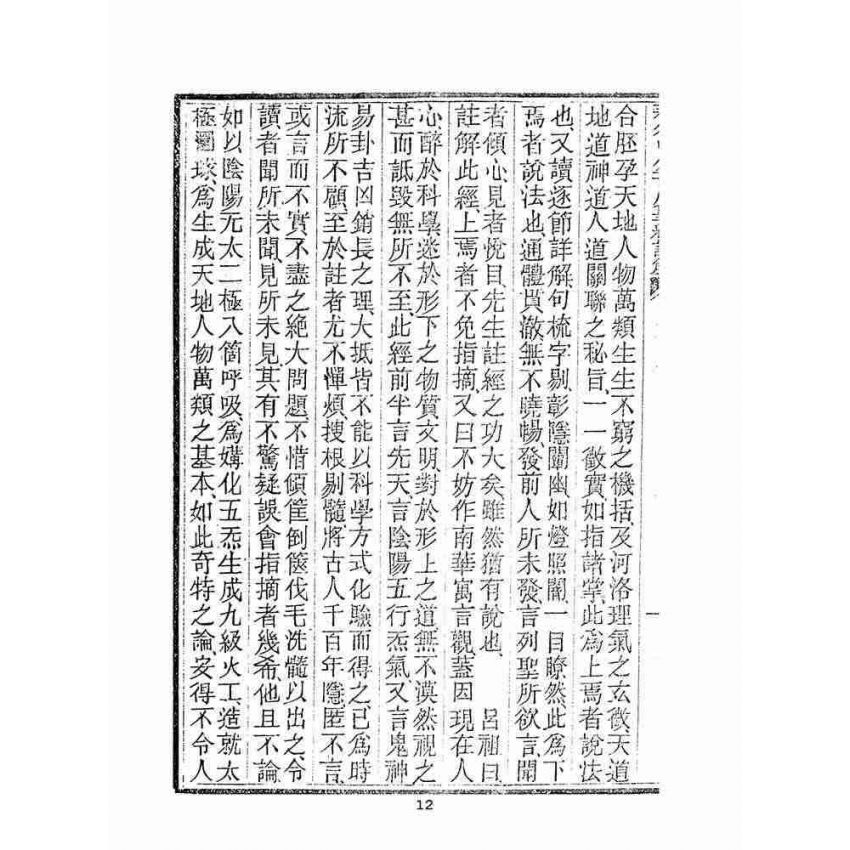 合胚孕天地人物萬類生生不窮之機括、及河洛理氣之玄微、天道
地道神道人道關聯之秘旨、一一徵實如指諸掌、此爲上焉者說法
也、又讀逐節詳解、句梳字剔、彰隱闡幽、如燈照闇、一目瞭然、此爲下
焉者說法也、通體貫澈、無不曉暢、發前人所未發、言列聖所欲言、聞
者傾心、見者悅目、先生註經之功大矣、雖然猶有說也、 呂祖曰、
註解此經、上焉者不免指摘、又曰不妨作南華寓言觀、蓋因現在人
心醉於科學、迷於形下之物質文明、對於形上之道、無不漠然視之、
甚而詆毀無所不至、此經前半言先天、言陰陽五行炁氣、又言鬼神
易卦吉凶銷長之理、大抵皆不能以科學方式化驗而得之、已爲時
流所不顧、至於註者尤不憚煩、搜根剔髓、將古人千百年隱匿不言、
或言而不實不盡之絕大問題、不惜傾筐倒篋、伐毛洗髓以出之、令
讀者聞所未聞、見所未見、其有不驚疑誤會指摘者幾希、他且不論、
如以陰陽元太二極八箇呼吸、爲媾化五炁、生成九級火工、造就太
極圓球、爲生成天地人物萬類之基本、如此奇特之論、安得不令人
一
12